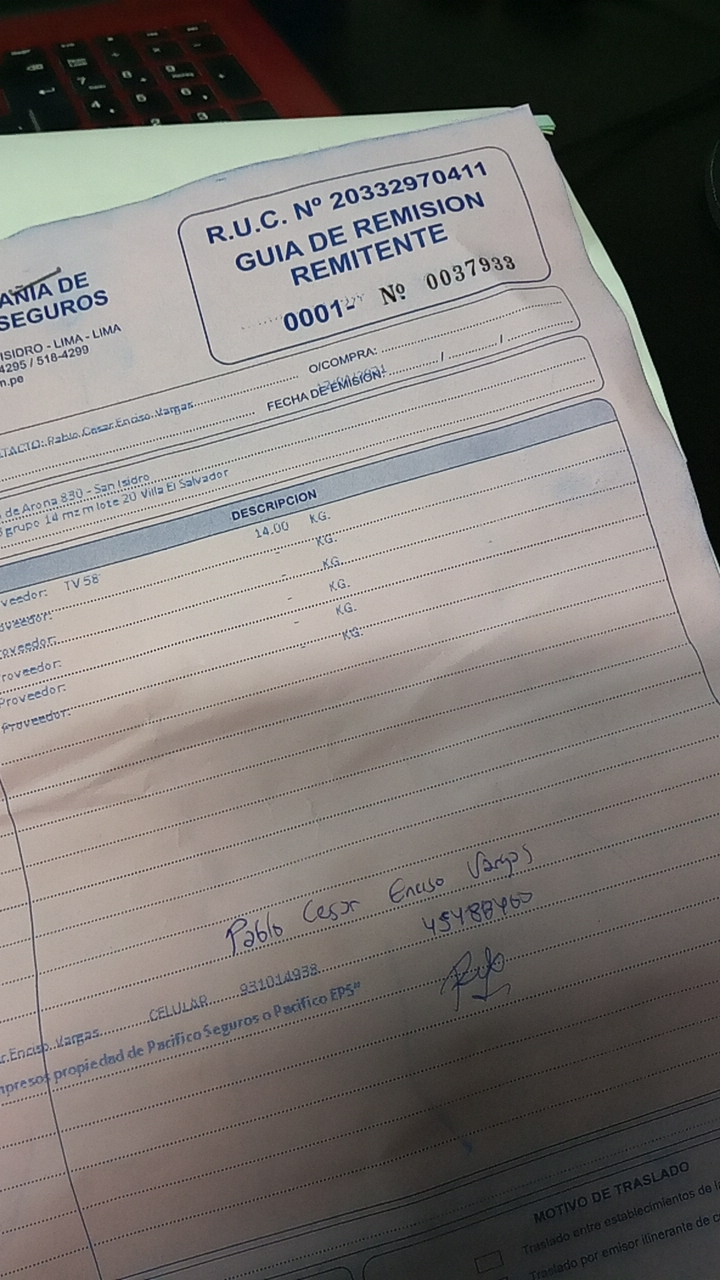 R.U.C. Nº 20332970411
GUIA DE REMISION
REMITENTE
0001- Nº 0037933
AÑIA DE
SEGUROS
ISIDRO - LIMA - LIMA
4295 / 518-4299
n.pe
O/COMPRA:
TACTO: Pablo Cesar Enciso Vargas
FECHA DE EMISIÓN: / /
de Arona 830 - San Isidro
grupo 14 mz m lote 20 Villa El Salvador
DESCRIPCION
veedor: TV 58" 14.00 KG.
oveedor: - KG.
roveedor: - KG.
roveedor: - KG.
Proveedor: - KG.
Proveedor: KG.
Pablo Cesar Enciso Vargas
45488460
CELULAR 931014938
r Enciso Vargas
mpresos propiedad de Pacifico Seguros o Pacifico EPS"
MOTIVO DE TRASLADO
Traslado entre establecimientos de l
Traslado por emisor itinerante de c